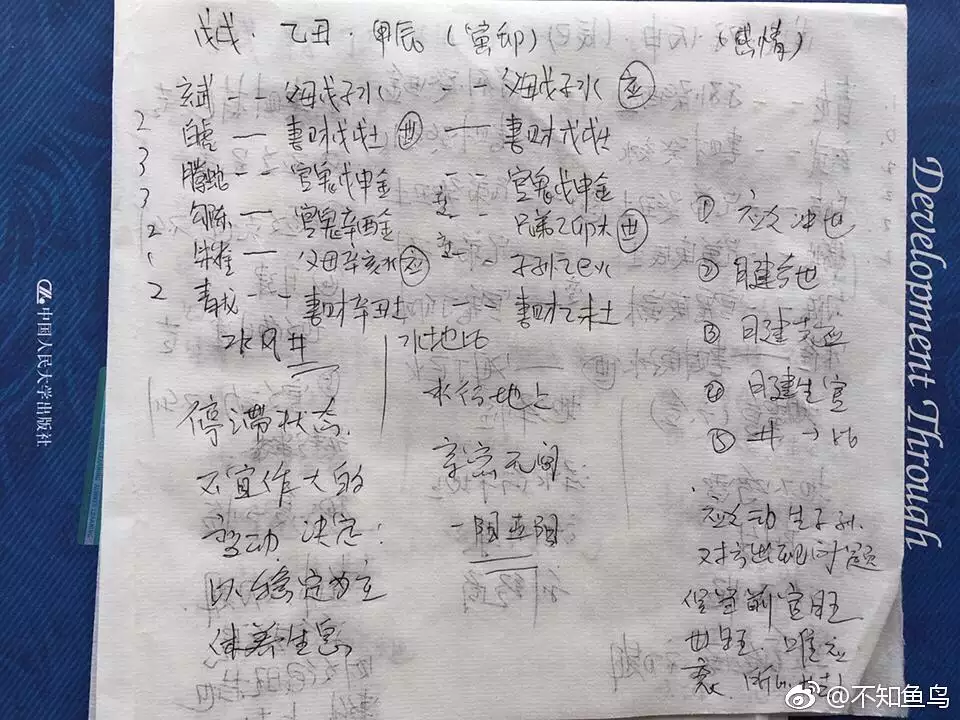 戊戌．乙丑．甲辰（寅卯） （感情）
玄武 — — 父母戊子水 — — 父母戊子水 应
2 白虎 — 妻财戊戌土 世 — 妻财戊戌土
3 腾蛇 — — 官鬼戊申金 — — 官鬼戊申金
3 勾陈 — 官鬼辛酉金 — — 兄弟乙卯木 世
2 朱雀 — 父母辛亥水 应 — — 子孙乙巳火
2 青龙 — — 妻财辛丑土 妻财乙未土
水风井
水地比
停滞状态
不宜作大的
变动 决定：
以稳定为主
休养生息
水行地上
亲密无间
一阳五阴
① 应爻冲世
② 日建合世
③ 日建克应
④ 日建生官
⑤ 井→比
应爻动 生子孙
对方出现问题
但当前官旺
世旺．唯应
衰．
Development Through
中国人民大学出版社
@不知鱼鸟